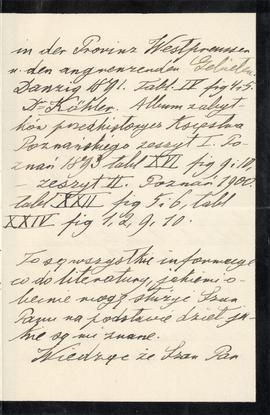 in der Provinz Westpreussen
u. den angrenzenden Gebieten.
Danzig 1891. Tabl. IV fig 4 i 5.
Dr Köhler. Album zabyt-
ków przedhistorycz Księstwa
Poznańskiego zeszyt I. Po-
znań 1893 tabl XVI fig 9 i 10
– zeszyt II. Poznań 1900.
tabl XXII fig 5 i 6, tabl
XXIV fig 1, 2, 9, 10.
To są wszystkie informacye
co do literatury, jakiemi o-
becnie mogę służyć Szan
Panu na podstawie dzieł ja-
kie są mi znane.
Wiedząc że Szan Pan